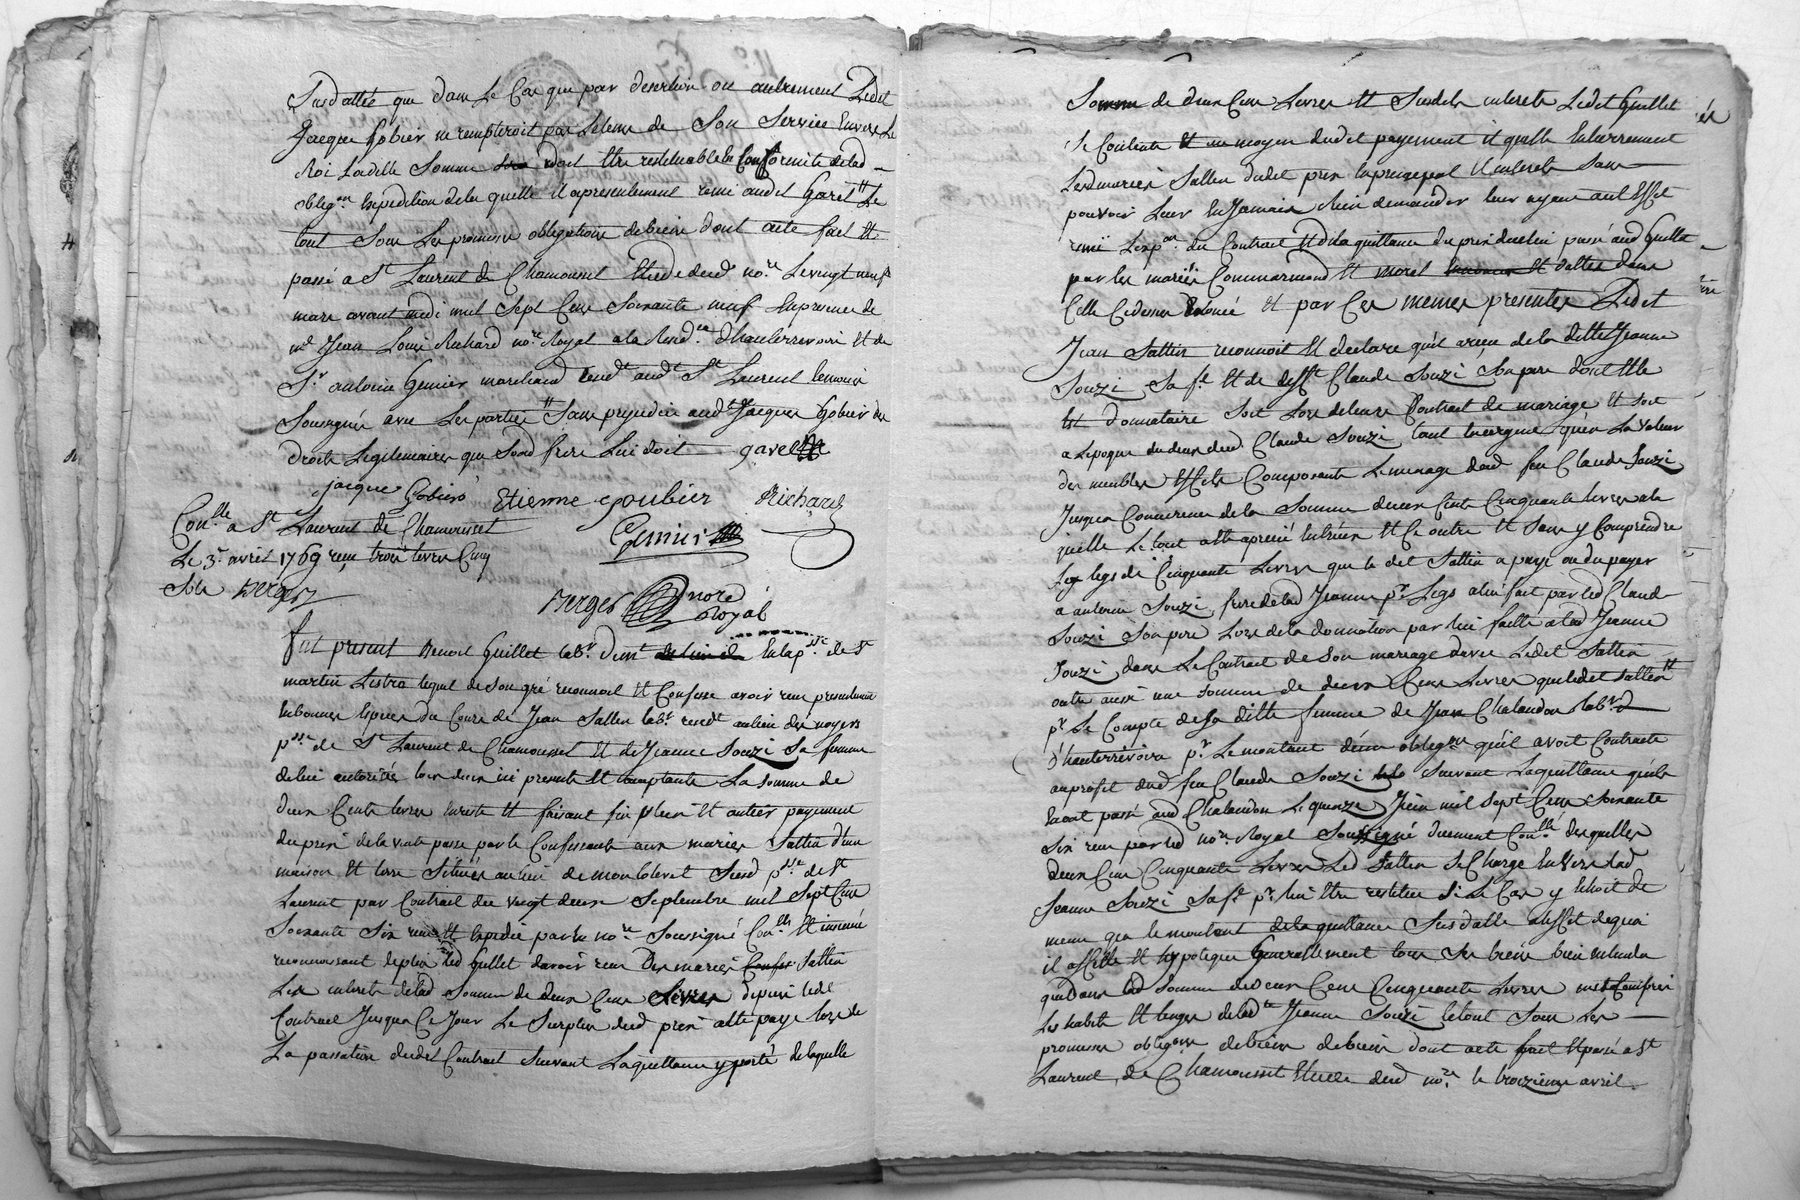 Susdattée que dans Le Cas que par desertion ou autrement Ledit
Jacque Gobier ne rempliroit pas Le tems de Son Service Envers Le
Roi Ladille Somme doit Etre restituable En Conformité delad
oblig.on Expedition de la quelle il a presentement remi audit Le
tout Sous Les promesses obligations de biens dont acte fait Et
passé a St Laurent de Chamousset Etude dud no.re Le vingt neuf
mars avant midi mil Sept Cens Soixante neuf En presence de
me Jean Louis Richard no.re Royal a la Resid.ce d'hauterrivoire Et de
Sr antoine Gemier marchand aud.t St Laurent temoin
Soussigné avec Les parties Sans prejudice aud.t Jacques Gobier des
droits Legitimaires que Sond frere Lui doit
jacque Gobier Etienne goubier Richard
Con.llé a St Laurent de Chamousset
Gemier
Le 3e. avril 1769 reçu trois Livres Cinq
Sols Berges
Berges nore Royal
fut present Benoit Guillet lab.r En la p.sse de St
martin Lestra lequel de Son gré reconnoit Et Confesse avoir reçu presentement
En bonnes Especes du Cours de Jean Sattin lab.r resid.t au lieu des noyers
p.sse de St Laurent de Chamousset Et de Jeanne Souzi Sa femme
de lui autorisée tous deux ici presents Et acceptants La Somme de
deux Cents Livres En reste Et faisant fin plein Et entier payement
du prix de la vente passé par le Confessant aux mariés Sattin d'une
maison Et terre Situées au lieu de Susd p.sse de St
Laurent par Contrat du vingt deux Septembre mil Sept Cens
Soixante Six reçu Et Expedié par le no.re Soussigné Con.llé Et insinué
reconnoissant de plus led Guillet d'avoir reçu Des mariés Sattin
Les interets delad Somme de deux Cens Livres depuis ledit
Contrat Jusqua Ce Jour Le Surplus dud prix a été payé lors de
La passation dudit Contrat Suivant La quittance y porté de laquelle
Somme de deux Cens Livres Et Susdits interets Ledit Guillet
Se Contente Et au moyen dudit payement il quitte Entierrement
Lesd mariés Sattin dudit prix En principal Et interets Sans
pouvoir Leur En Jamais Rien demander leur ayant a cet Effet
remi L'exp.on du Contrat Et de la quittance du prix
par les mariés Commarmond Et morel dattés dans
Celle Cidessus Enoncé Et par Ces memes presentes Ledit
Jean Sattin reconnoit Et declare qu'il a reçu de la ditte Jeanne
Souzi Sa fe Et de deff.t Claude Souzi Son pere dont Elle
Est donnataire Soit Lors de leurs Contrat de mariage Et Soit
a L'epoque du deces dud Claude Souzi tant En argent qu'en La valeur
des meubles Effets Composants Le menage dud feu Claude Souzi
Jusqua Concurrence de la Somme de Cent Cinquante Livres a la
quelle Le tout a été apretié Entr'eux Et Ce outre Et Sans y Comprendre
Les legs de Cinquante Livres que le dit Sattin a payé ou du payer
a antoine Souzi frere de lad Jeanne p.r Legs a lui fait par led Claude
Souzi Son pere Lors de la donnation par lui faitte a lad Jeanne
Souzi dans Le Contrat de Son mariage avec Ledit Sattin
outre aussi une Somme de deux Cens Livres que ledit Sattin
p.r Le Compte de Sa ditte femme de Jean Chalandon lab.r
d'hauterrivoire p.r Le montant d'une oblig.on qu'il avoit Contracté
au profit dud feu Claude Souzi Suivant La quittance qu'il
En avoit passé aud Chalandon Le quinze Juin mil Sept Cens Soixante
Six reçu par led no.re Royal Soussigné duement Con.llé desquelles
deux Cens Cinquante Livres Led Sattin Se Charge Envers lad
Jeanne Souzi Sa fe p.r lui Etre restitué Si Le Cas y Echoit de
meme que le montant de la quittance Susdatté a l'effet de quoi
il affecte Et hypoteque Generallement tous Ses biens bien Entendu
que dans lad Somme de deux Cens Cinquante Livres
Les habits Et linges de lad.te Jeanne Souzi Le tout Sous Les
promesses oblig.ons de biens dont acte fait Et passé a St
Laurent de Chamousset Etude dud no.re le troizieme avril